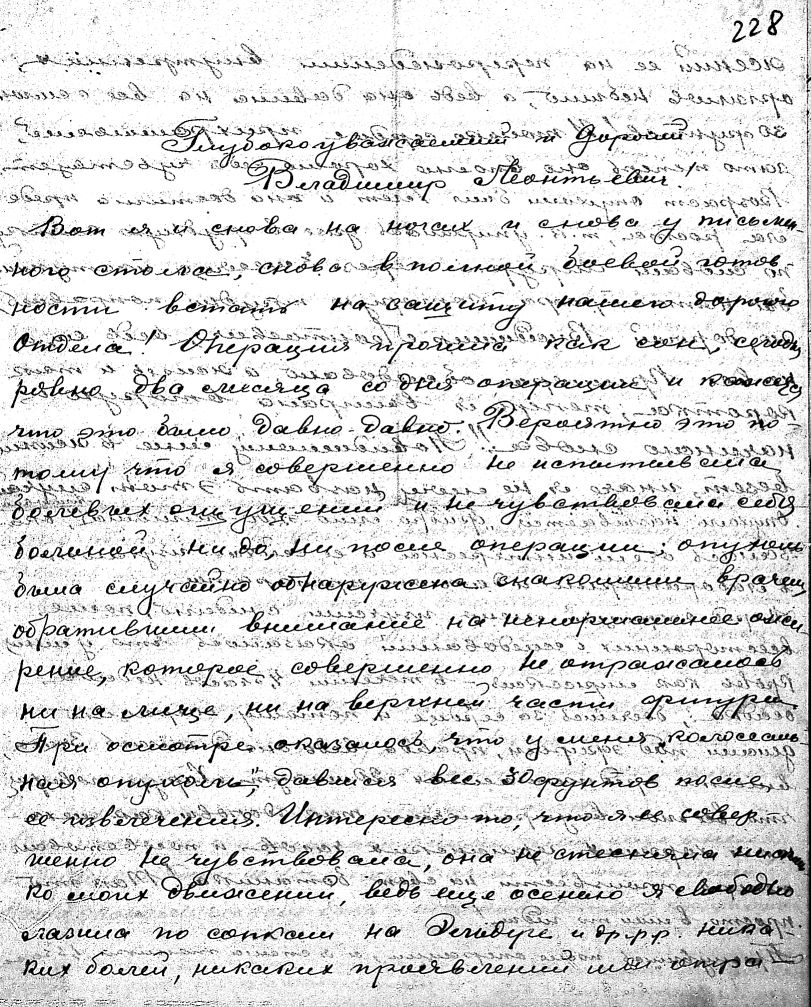 228
Глубокоуважаемый и Дорогой
Владимир Леонтьевич!
Вот я и снова на ногах и снова у письмен-
ного стола, снова в полной боевой готов
ности встать на защиту нашего дорогого
Отдела! Операция прошла как сон, сегодня
ровно два месяца со дня операции и кажется
что это было давно-давно. Вероятно это по-
тому, что я совершенно не испытывала
болевых ощущений и не чувствовала себя
больной ни до, ни после операции: опухоль
была случайно обнаружена знакомым врачем,
обратившим внимание на ненормальное ожи
рение, которое совершенно не отражалось
ни на лице, ни на верхней части фигуры.
При осмотре оказалось, что у меня "колоссаль
ная опухоль", давшая вес 30 фунтов после
ее извлечения. Интересно то, что я ее совер
шенно не чувствовала, она не стесняла нисколь
ко моих движений, ведь еще осенью я свободно
лазила по сопкам на и др. р.р. ника
ких болей, никаких проявлений